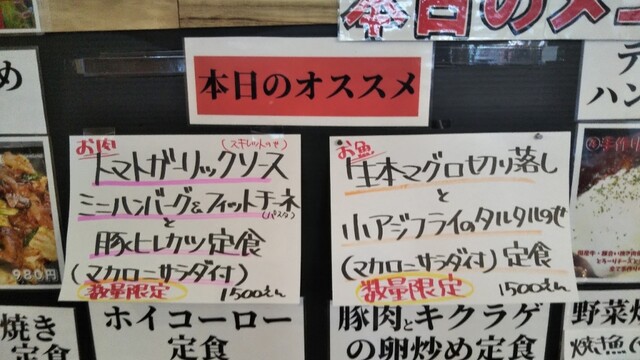 本日のメニ
本日のオススメ
お肉
(スキレットのせ)
トマトガーリックソース
ミニハンバーグ&フィットチーネ
(パスタ)
と
豚ヒレカツ定食
(マカロニサラダ付)
数量限定
1500えん
お魚
生本マグロ切り落し
と
小アジフライのタルタルのせ
(マカロニサラダ付)定食
数量限定
1500えん
め
980円
焼き
定食
ホイコーロー
定食
豚肉とキクラゲ
の卵炒め定食
デ
ハン
手作り
野菜
焼魚の